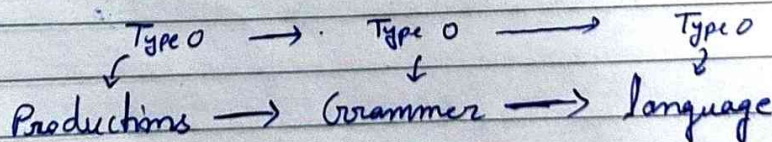 Type 0 → Type 0 → Type 0
Productions → Grammer → language